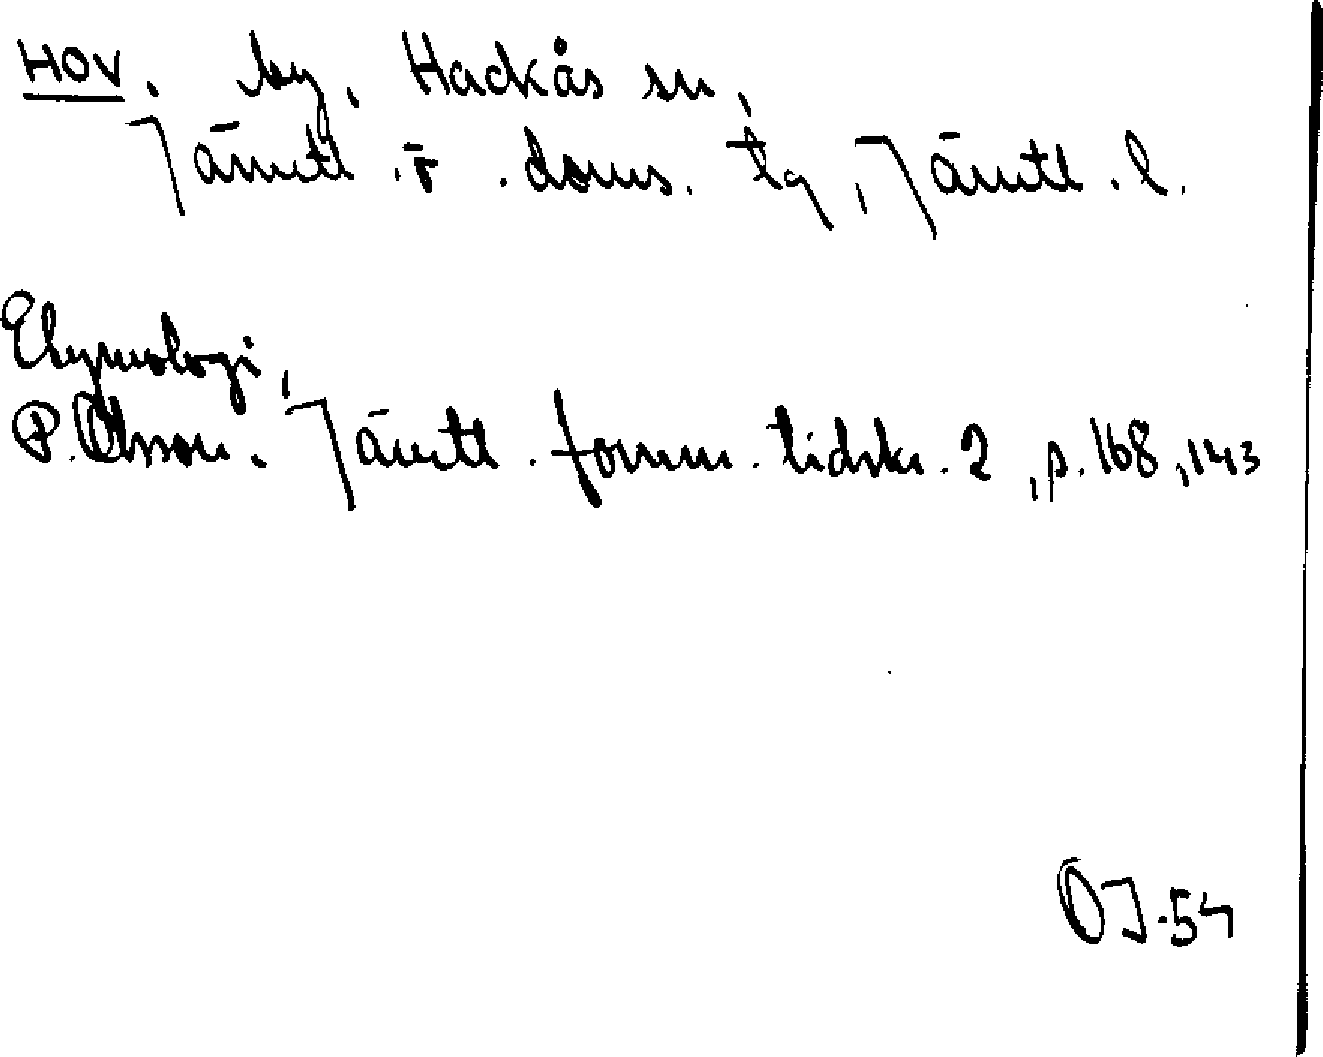 HOV, by, Hackås sn,
Jämtl. v. doms. tg, Jämtl. l.
Etymologi,
P. Olsson. Jämtl. fornm. tidskr. 2, p. 168, 143
OJ-54